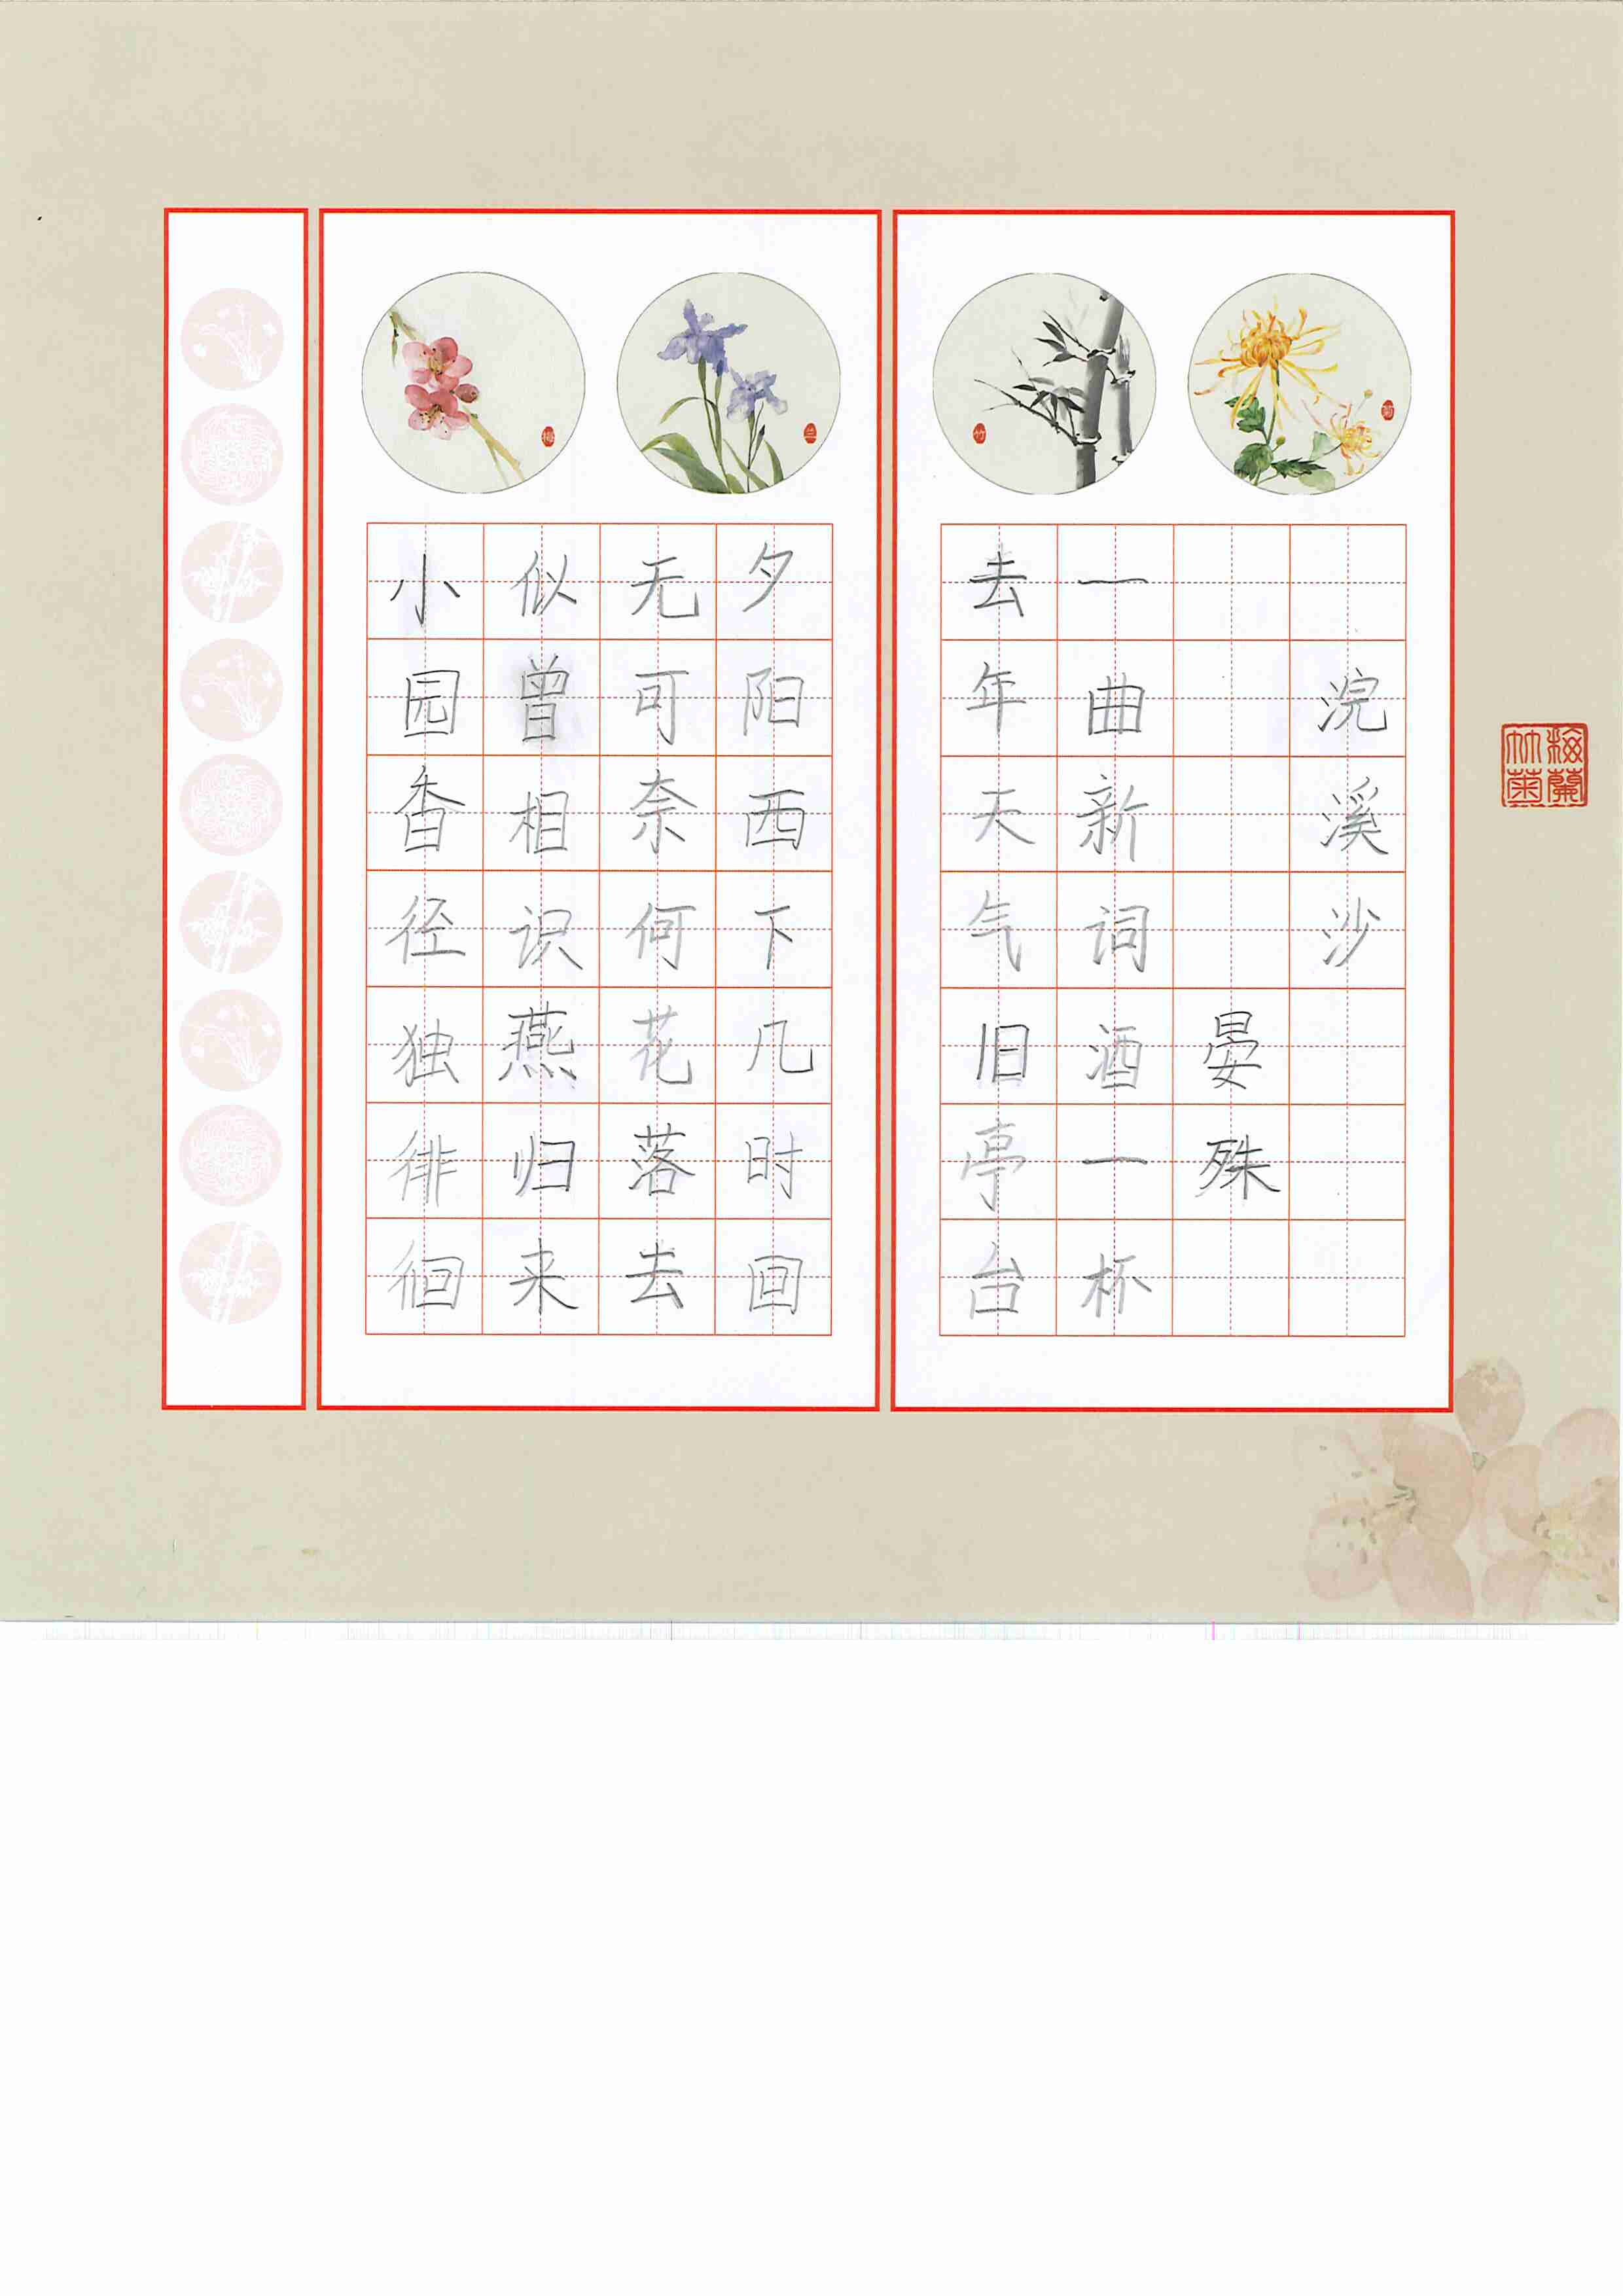 浣溪沙
晏殊
一曲新词酒一杯
去年天气旧亭台
夕阳西下几时回
无可奈何花落去
似曾相识燕归来
小园香径独徘徊
梅蘭
竹菊
菊
竹
兰
梅